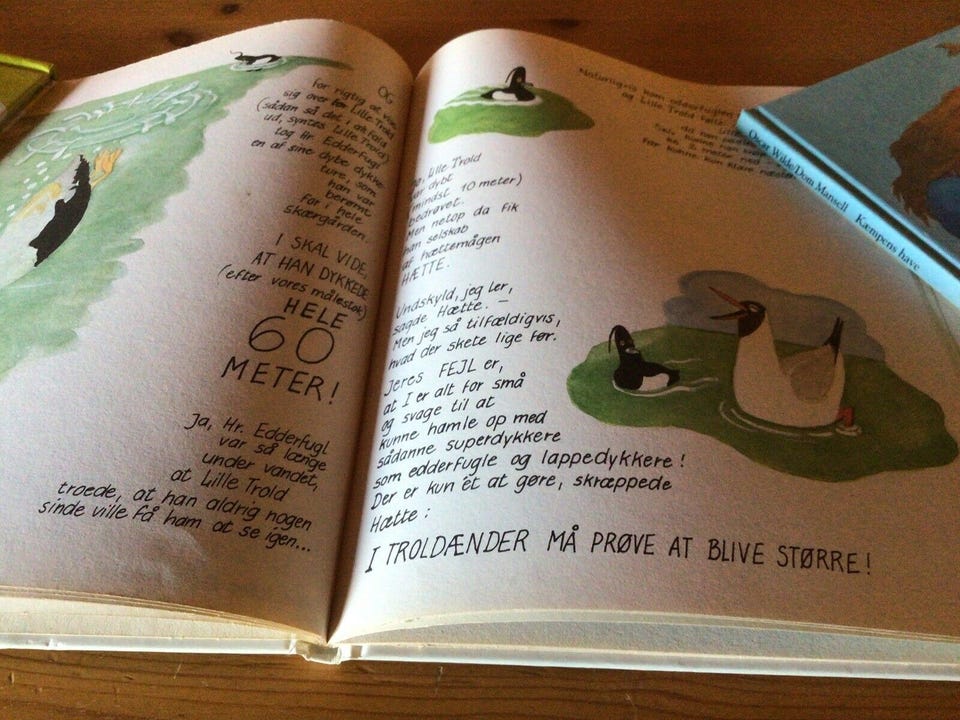 OG
for rigtig at vise
sig over for Lille Trold
(sådan så det i alt fald
ud, syntes Lille Trold)
tog Hr. Edderfugl
en af sine dybe dykke-
ture, som
han var
berømt
for i hele
skærgården.
I SKAL VIDE,
AT HAN DYKKEDE
(efter vores målestok)
HELE
60
METER!
Ja, Hr. Edderfugl
var så længe
under vandet,
at Lille Trold
troede, at han aldrig nogen
sinde ville få ham at se igen...
Naturligvis kom edderfuglen
og Lille Trold
da han
2 meter ned
Lille Trold
var dybt
(mindst 10 meter)
bedrøvet.
Men netop da fik
han selskab
af hættemågen
HÆTTE.
Undskyld, jeg ler,
sagde Hætte. –
Men jeg så tilfældigvis,
hvad der skete lige før.
Jeres FEJL er,
at I er alt for små
og svage til at
kunne hamle op med
sådanne superdykkere
som edderfugle og lappedykkere!
Der er kun ét at gøre, skræppede
Hætte:
I TROLDÆNDER MÅ PRØVE AT BLIVE STØRRE!
Oscar Wilde/Dom Mansell Kæmpens have